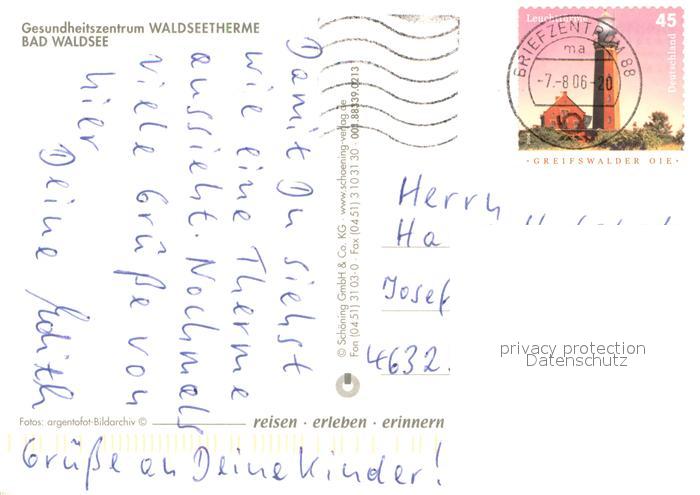 Gesundheitszentrum WALDSEETHERME
BAD WALDSEE
Damit Du siehst
wie eine Therme
aussieht. Nochmals
viele Grüße von
hier
Deine Edith
Grüße an Deine Kinder!
Fotos: argentofot-Bildarchiv ©
reisen · erleben · erinnern
© Schöning GmbH & Co. KG · www.schoening-verlag.de
Fon (04 51) 31 03-0 · Fax (04 51) 3 10 31 30 · 001.88339.0213
Leuchttürme
45
Deutschland
BRIEFZENTRUM 88
ma
-7.-8.06-20
·GREIFSWALDER OIE·
Herrn
Ha
Josef
4632.
privacy protection
Datenschutz